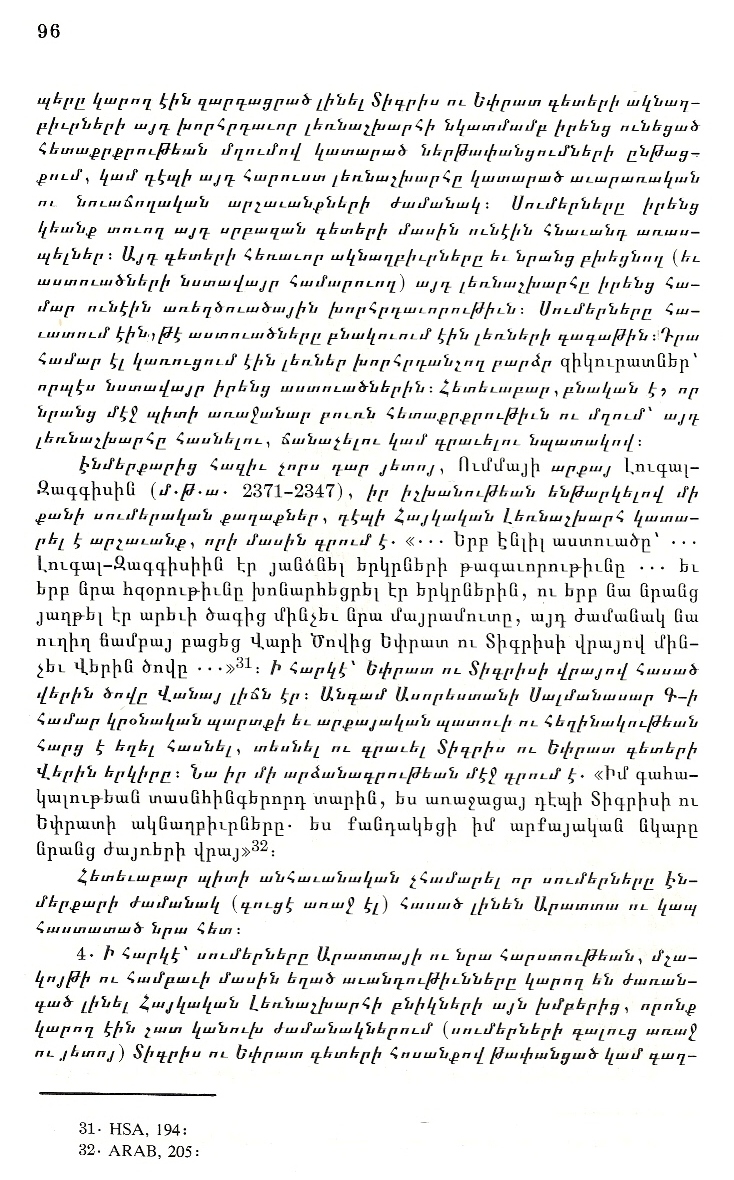 96
պերը կարող էին զարդացրած լինել Տիգրիս ու Եփրատ գետերի ակնաղ–
բիւրների այդ խորհրդաւոր լեռնաշխարհի նկատմամբ իրենց ունեցած
հետաքրքրութեան մղումով կատարած ներթափանցումների ընթաց–
քում, կամ դէպի այդ հարուստ լեռնաշխարհը կատարած աւարառական
ու նուաճողական արշաւանքների ժամանակ։ Սումերները իրենց
կեանք տուող այդ սրբազան գետերի մասին ունէին հնաւանդ առաս–
պելներ։ Այդ գետերի հեռաւոր ակնաղբիւրները եւ նրանց բխեցնող (եւ
աստուածների նստավայր համարուող) այդ լեռնաշխարհը իրենց հա–
մար ունէին առեղծուածային խորհրդաւորութիւն։ Սումերները հա–
ւատում էին, թէ աստուածները բնակուում էին լեռների գագաթին։ Դրա
համար էլ կառուցում էին լեռներ խորհրդանշող բարձր զիկուրատներ՝
որպէս նստավայր իրենց աստուածներին։ Հետեւաբար, բնական է, որ
նրանց մէջ պիտի առաջանար բուռն հետաքրքրութիւն ու մղում՝ այդ
լեռնաշխարհը հասնելու, ճանաչելու կամ գրաւելու նպատակով։
Էնմերքարից հազիւ չորս դար յետոյ, Ումմայի արքայ Լուգալ–
Զագգիսին (մ.թ.ա. 2371–2347), իր իշխանութեան ենթարկելով մի
քանի սումերական քաղաքներ, դէպի Հայկական Լեռնաշխարհ կատա–
րել է արշաւանք, որի մասին գրում է. «... Երբ Էնլիլ աստուածը՝ ...
Լուգալ–Զագգիսիին էր յանձնել երկրների թագաւորութիւնը ... եւ
երբ նրա հզօրութիւնը խոնարհեցրել էր երկրներին, ու երբ նա նրանց
յաղթել էր արեւի ծագից մինչեւ նրա մայրամուտը, այդ ժամանակ նա
ուղիղ ճամբայ բացեց Վարի Ծովից Եփրատ ու Տիգրիսի վրայով մին–
չեւ Վերին ծովը ...»31։ Ի հարկէ՝ Եփրատ ու Տիգրիսի վրայով հասած
վերին ծովը Վանայ լիճն էր։ Անգամ Ասորեստանի Սալմանասար Գ–ի
համար կրօնական պարտքի եւ արքայական պատուի ու հեղինակութեան
հարց է եղել հասնել, տեսնել ու գրաւել Տիգրիս ու Եփրատ գետերի
Վերին երկիրը։ Նա իր մի արձանագրութեան մէջ գրում է. «Իմ գահա–
կալութեան տասնհինգերորդ տարին, ես առաջացայ դէպի Տիգրիսի ու
Եփրատի ակնաղբիւրները. ես քանդակեցի իմ արքայական նկարը
նրանց ժայռերի վրայ»32։
Հետեւաբար պիտի անհաւանական չհամարել որ սումերները Էն–
մերքարի ժամանակ (գուցէ առաջ էլ) հասած լինեն Արատտա ու կապ
հաստատած նրա հետ։
4. Ի հարկէ՝ սումերները Արատտայի ու նրա հարստութեան, մշա–
կոյթի ու համբաւի մասին եղած աւանդութիւնները կարող են ժառան–
գած լինել Հայկական Լեռնաշխարհի բնիկների այն խմբերից, որոնք
կարող էին շատ կանուխ ժամանակներում (սումերների գալուց առաջ
ու յետոյ) Տիգրիս ու Եփրատ գետերի հոսանքով թափանցած կամ գաղ–
31. HSA, 194:
32. ARAB, 205: